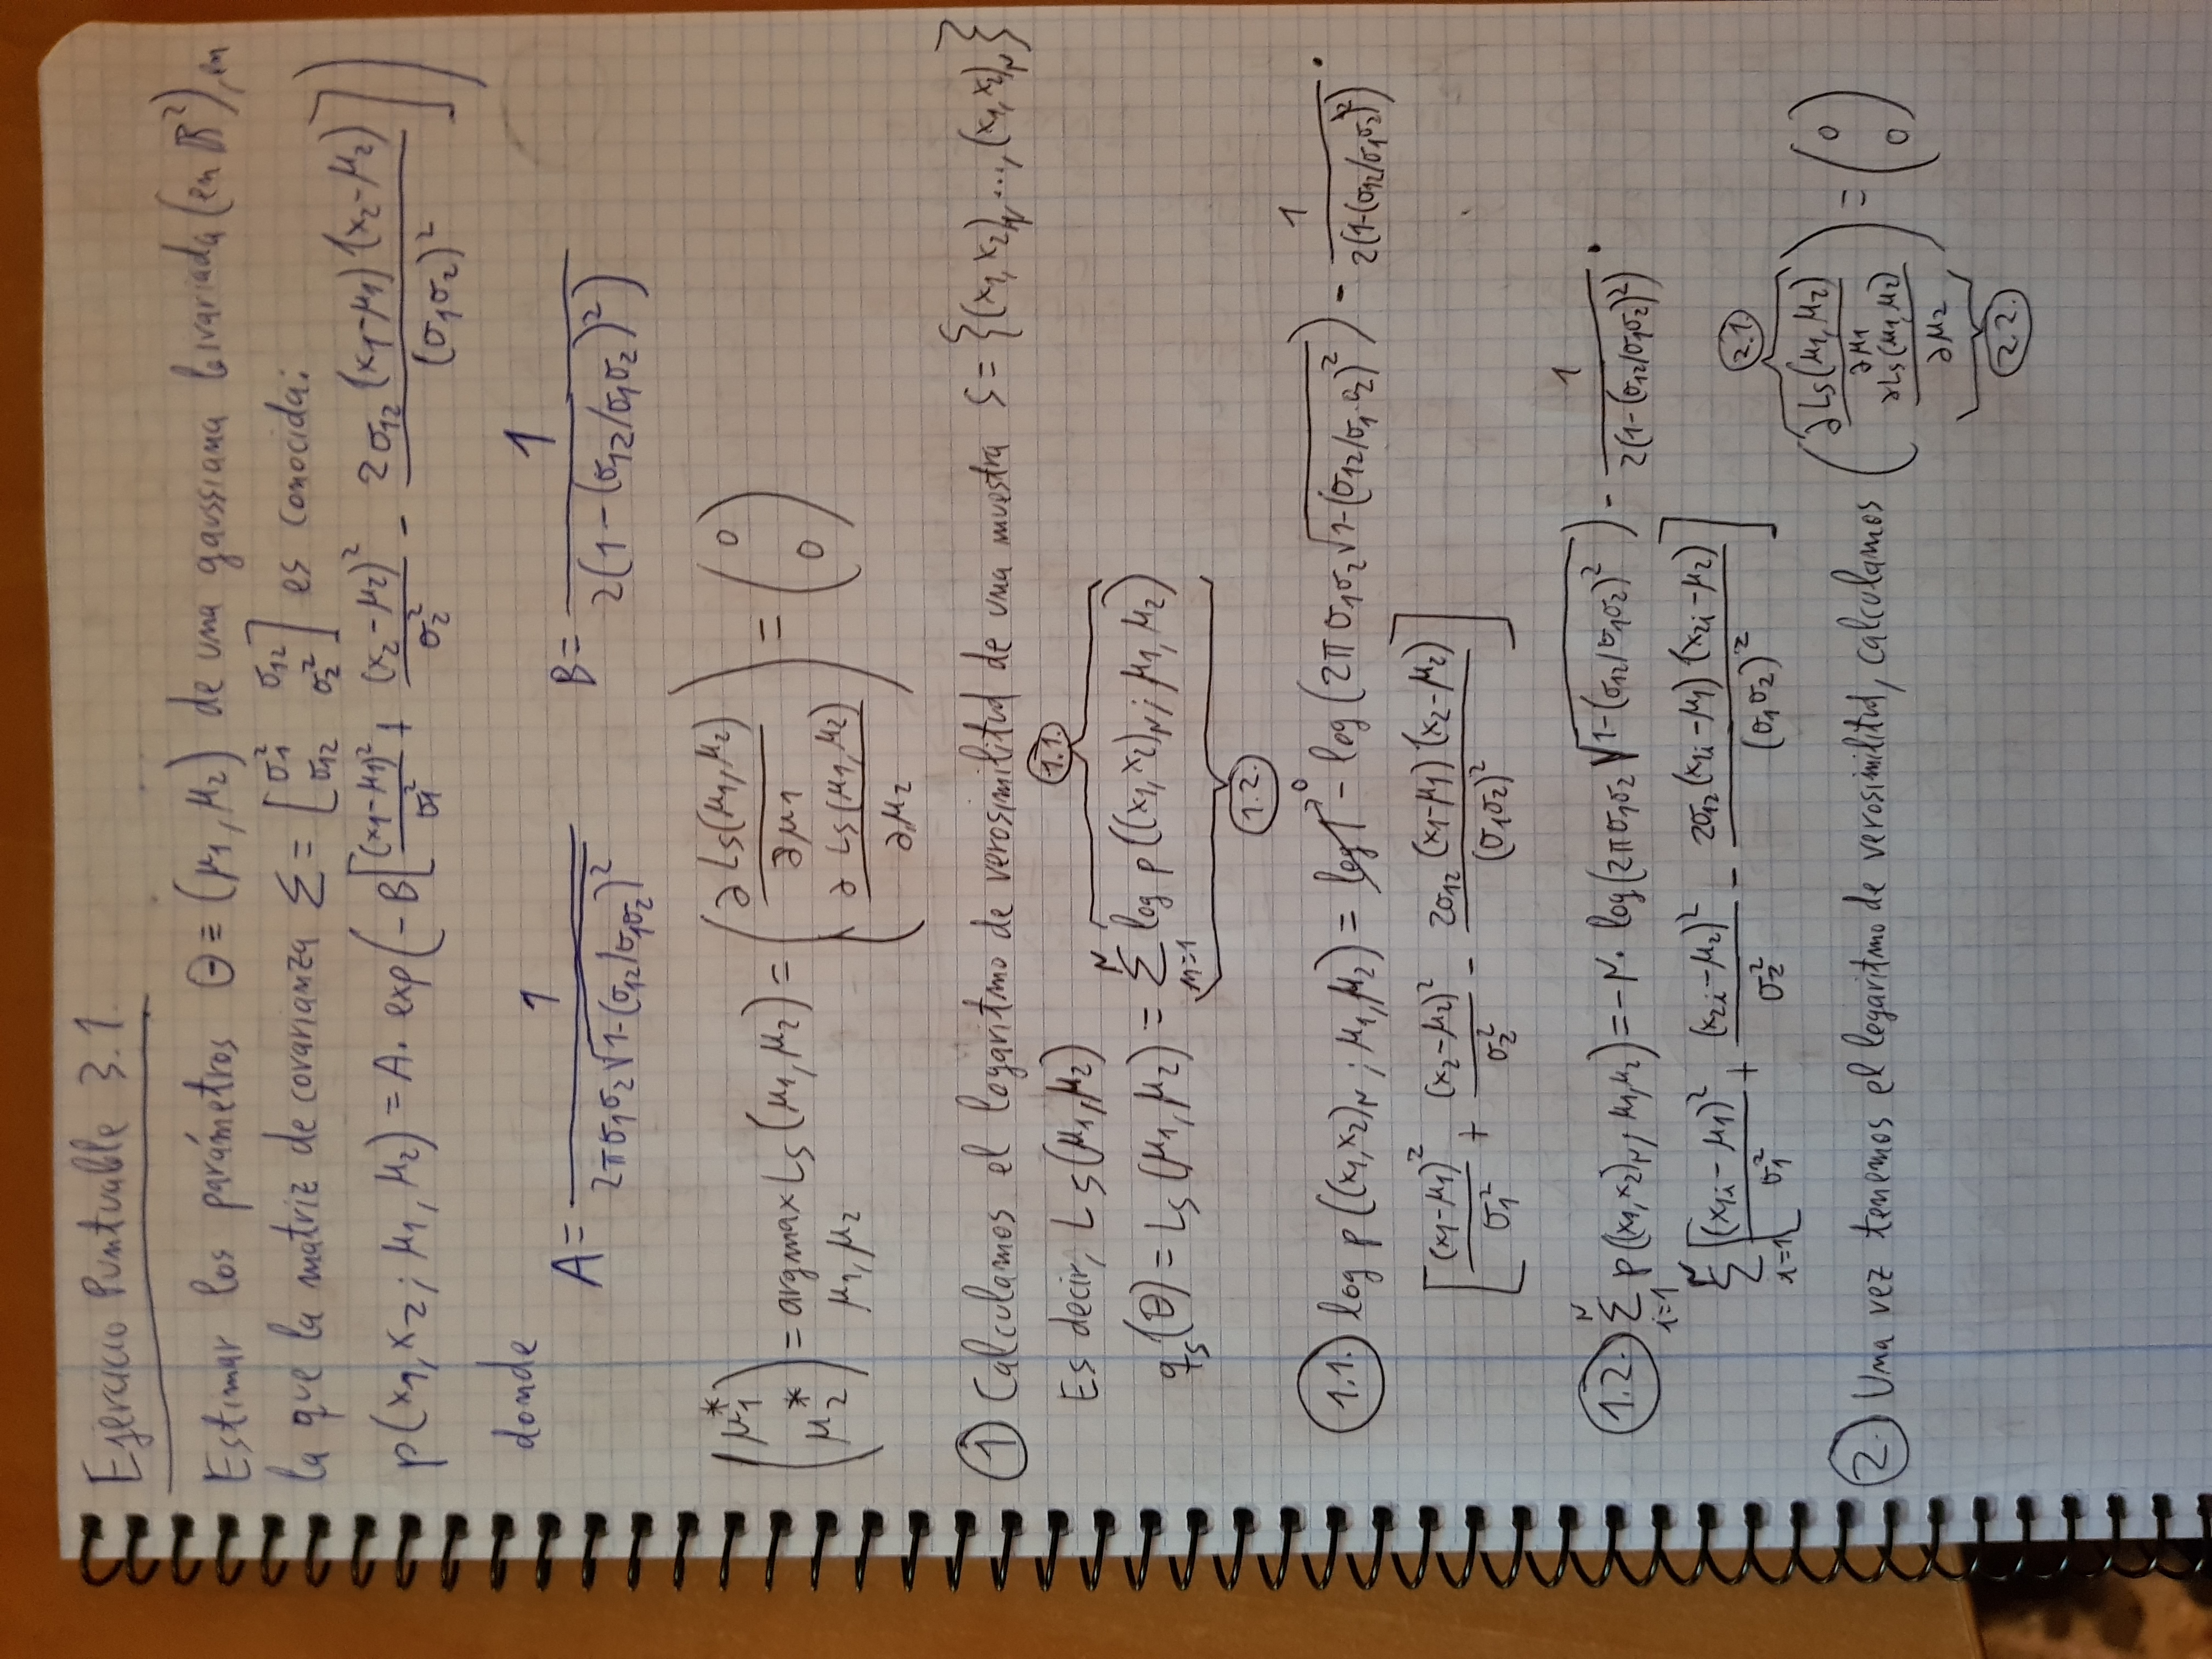 Ejercicio Puntuable 3.1.
Estimar los parámetros Θ ≡ (μ₁, μ₂) de una gaussiana bivariada (en ℝ²), en
la que la matriz de covarianza Σ = [σ₁² σ₁₂; σ₁₂ σ₂²] es conocida:
p(x₁, x₂; μ₁, μ₂) = A · exp(-B[(x₁-μ₁)²/σ₁² + (x₂-μ₂)²/σ₂² - 2σ₁₂(x₁-μ₁)(x₂-μ₂)/(σ₁σ₂)²])
donde
A = 1/(2πσ₁σ₂√(1-(σ₁₂/σ₁σ₂)²)) B = 1/(2(1-(σ₁₂/σ₁σ₂)²))
(μ₁*; μ₂*) = argmax μ₁, μ₂ L_S(μ₁, μ₂) = (∂L_S(μ₁, μ₂)/∂μ₁; ∂L_S(μ₁, μ₂)/∂μ₂) = (0; 0)
① Calculamos el logaritmo de verosimilitud de una muestra S = {(x₁, x₂)_N, ..., (x₁, x₂)_N}
Es decir, L_S(μ₁, μ₂)
1.1.
q_S(Θ) = L_S(μ₁, μ₂) = Σ_{n=1}^{N} log p((x₁, x₂)_N; μ₁, μ₂)
1.2.
1.1. log p((x₁, x₂)_N; μ₁, μ₂) = log 1 → 0 - log(2πσ₁σ₂√(1-(σ₁₂/σ₁·σ₂)²)) - 1/(2(1-(σ₁₂/σ₁σ₂)²)) ·
[(x₁-μ₁)²/σ₁² + (x₂-μ₂)²/σ₂² - 2σ₁₂(x₁-μ₁)(x₂-μ₂)/(σ₁σ₂)²]
1.2. Σ_{i=1}^{N} p((x₁, x₂)_N; μ₁, μ₂) = -N · log(2πσ₁σ₂√(1-(σ₁₂/σ₁σ₂)²)) - 1/(2(1-(σ₁₂/σ₁σ₂)²)) ·
Σ_{i=1}^{N} [(x₁ᵢ-μ₁)²/σ₁² + (x₂ᵢ-μ₂)²/σ₂² - 2σ₁₂(x₁ᵢ-μ₁)(x₂ᵢ-μ₂)/(σ₁σ₂)²]
2.1.
2. Una vez tenemos el logaritmo de verosimilitud, calculamos (∂L_S(μ₁, μ₂)/∂μ₁; ∂L_S(μ₁, μ₂)/∂μ₂) = (0; 0)
2.2.